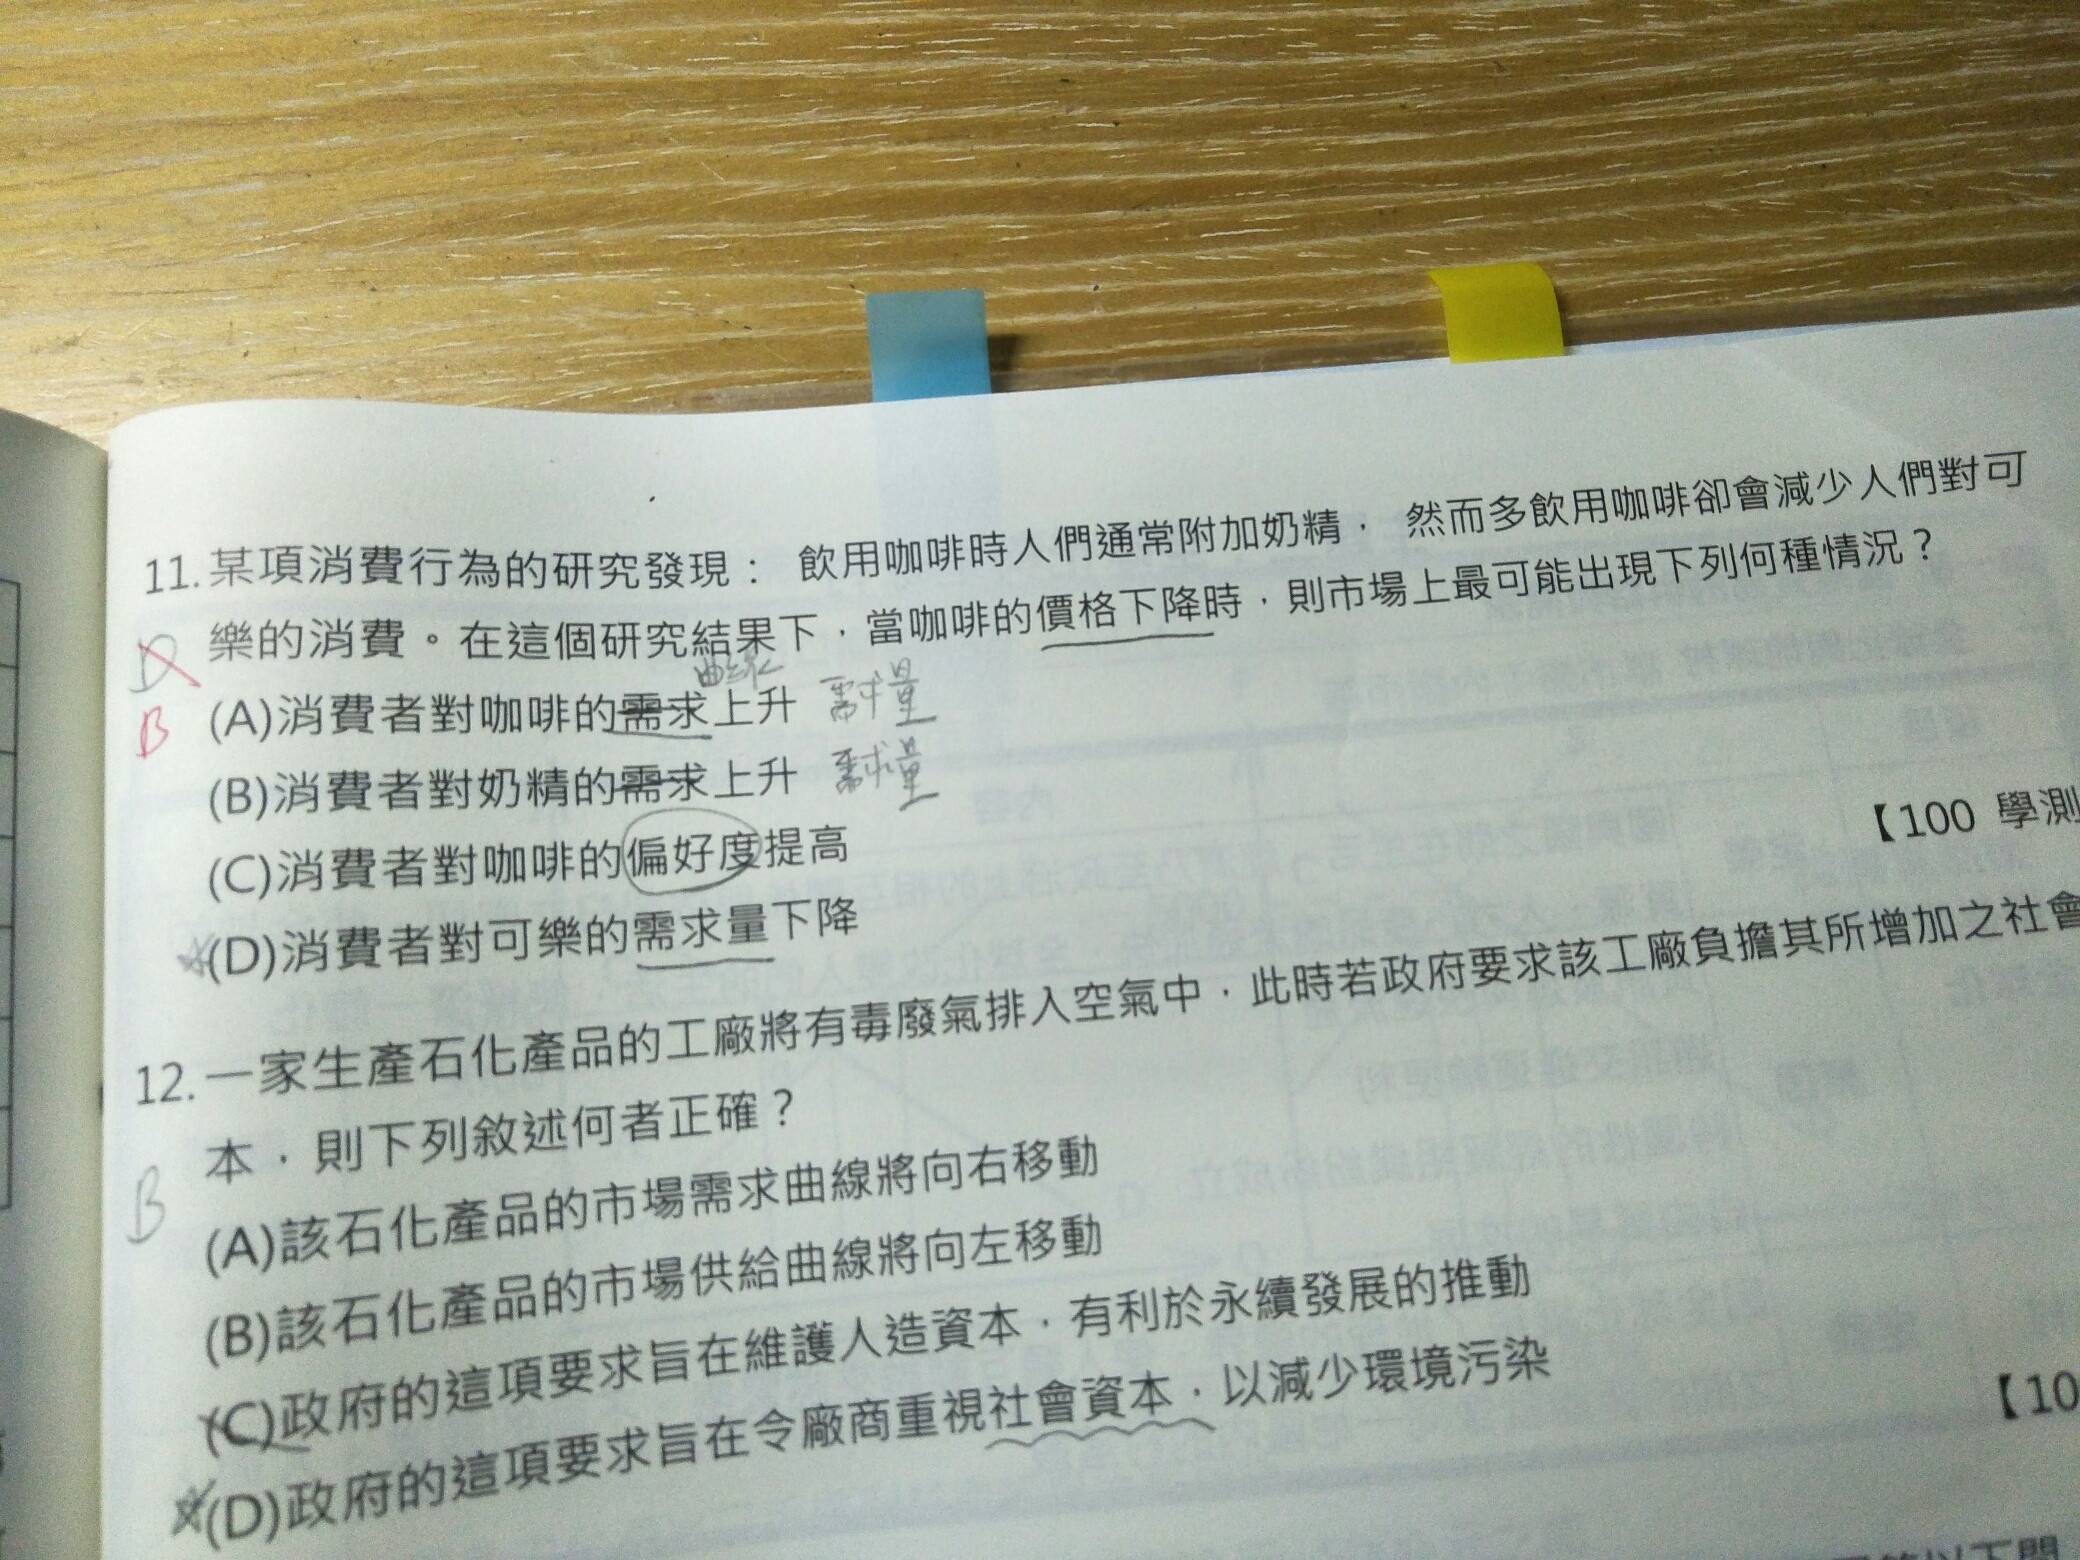 11.某項消費行為的研究發現： 飲用咖啡時人們通常附加奶精， 然而多飲用咖啡卻會減少人們對可
樂的消費。在這個研究結果下，當咖啡的價格下降時，則市場上最可能出現下列何種情況？
D
曲線
B
(A)消費者對咖啡的需求上升 需求量
(B)消費者對奶精的需求上升 需求量
(C)消費者對咖啡的偏好度提高
【100 學測
(D)消費者對可樂的需求量下降
12.一家生產石化產品的工廠將有毒廢氣排入空氣中，此時若政府要求該工廠負擔其所增加之社會
本，則下列敘述何者正確？
B
(A)該石化產品的市場需求曲線將向右移動
(B)該石化產品的市場供給曲線將向左移動
(C)政府的這項要求旨在維護人造資本，有利於永續發展的推動
(D)政府的這項要求旨在令廠商重視社會資本，以減少環境污染
【10